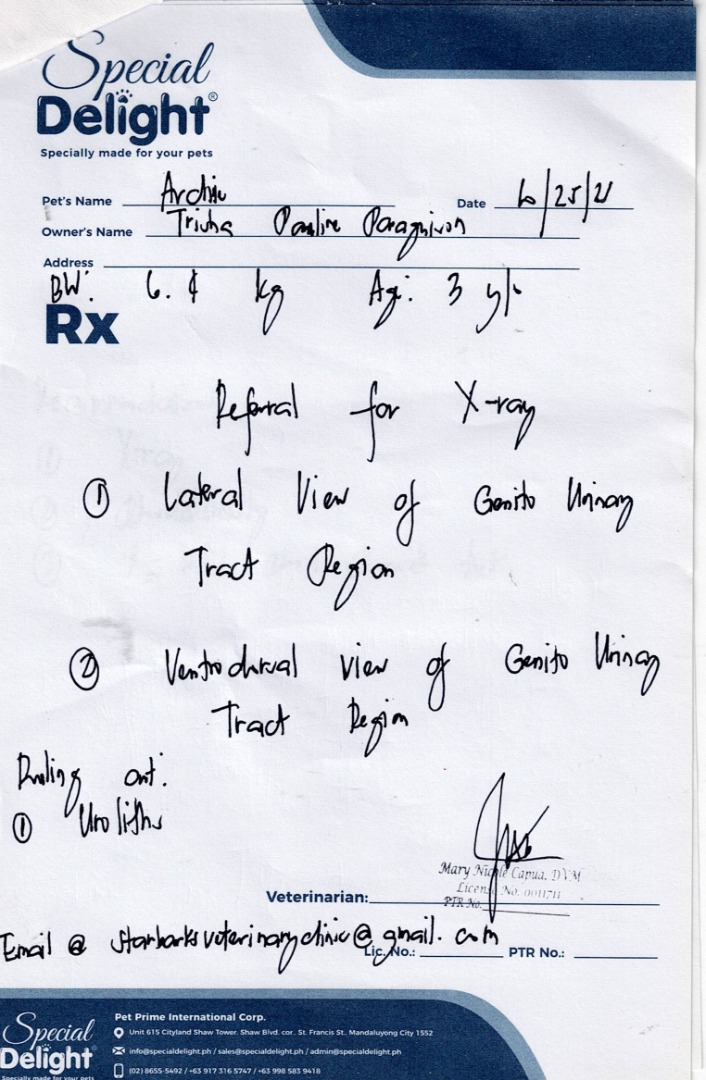 Special
Delight®
Specially made for your pets
Pet's Name Archie Date 6/25/21
Owner's Name Trisha Pauline
Address
BW: 6. kg Age: 3 y/o
Rx
Referral for X-ray
① Lateral View of Genito Urinary
Tract Region
② Ventrodorsal view of Genito Urinary
Tract Region
Ruling out:
① Uroliths
Mary Nicole Capua, DVM
License No. 0011711
PTR No.
Veterinarian:
Email @ starbarksveterinaryclinic@gmail.com
Lic. No.: PTR No.:
Special
Delight
Specially made for your pets
Pet Prime International Corp.
Unit 615 Cityland Shaw Tower. Shaw Blvd. cor. St. Francis St., Mandaluyong City 1552
info@specialdelight.ph / sales@specialdelight.ph / admin@specialdelight.ph
(02) 8655-5492 / +63 917 316 5747 / +63 998 583 9418